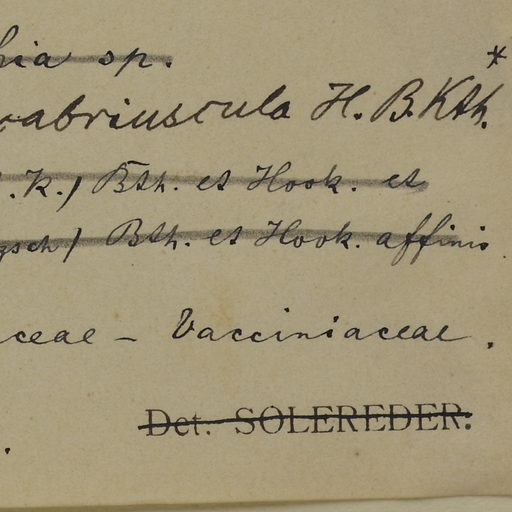 hia sp. *
cabriuscula H. B. Kth.
.K.) Bth. et Hook. et
zsch) Bth. et Hook. affinis
ceae – Vacciniaceae.
Det. SOLEREDER.